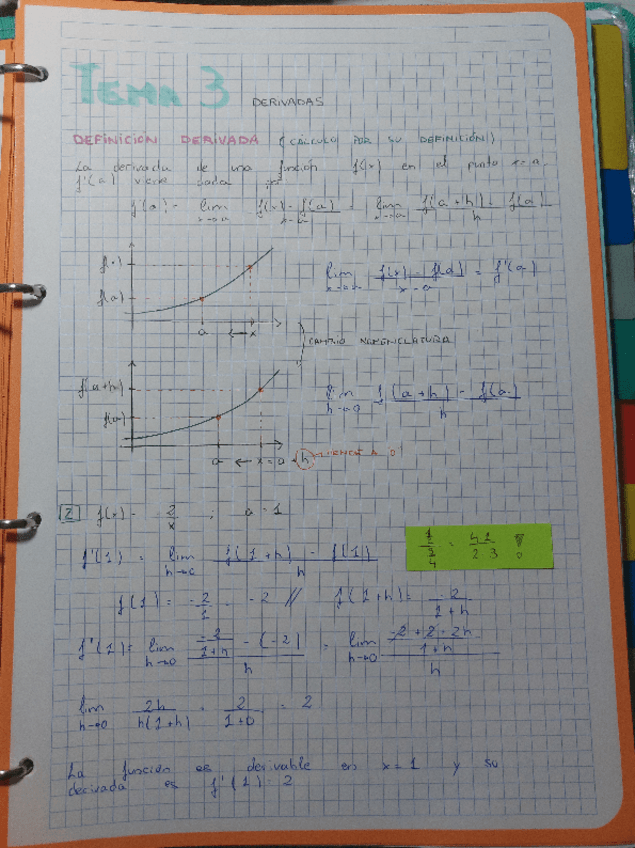 TEMA 3 DERIVADAS
DEFINICION DERIVADA (CÁLCULO POR SU DEFINICIÓN)
La derivada de una función f(x) en el punto x=a,
f'(a) viene dada
f'(a) = lim x→a f(x) - f(a) / x-a = lim f(a+h) - f(a) / h
f(x)
f(a)
a ← x
lim x→a f(x) - f(a) / x-a = f'(a)
CAMBIO NOMENCLATURA
f(a+h)
f(a)
a ← x = a + h TIENDE A 0
lim h→0 f(a+h) - f(a) / h
2 f(x) = 2/x ; a = 1
f'(1) = lim h→0 f(1+h) - f(1) / h
f(1) = -2/1 = -2 // f(1+h) = -2/1+h
f'(1) = lim h→0 -2/1+h - (-2) / h = lim h→0 -2+2+2h/1+h / h
lim h→0 2h / h(1+h) = 2/1+0 = 2
La función es derivable en x=1 y su
derivada es f'(1) = 2